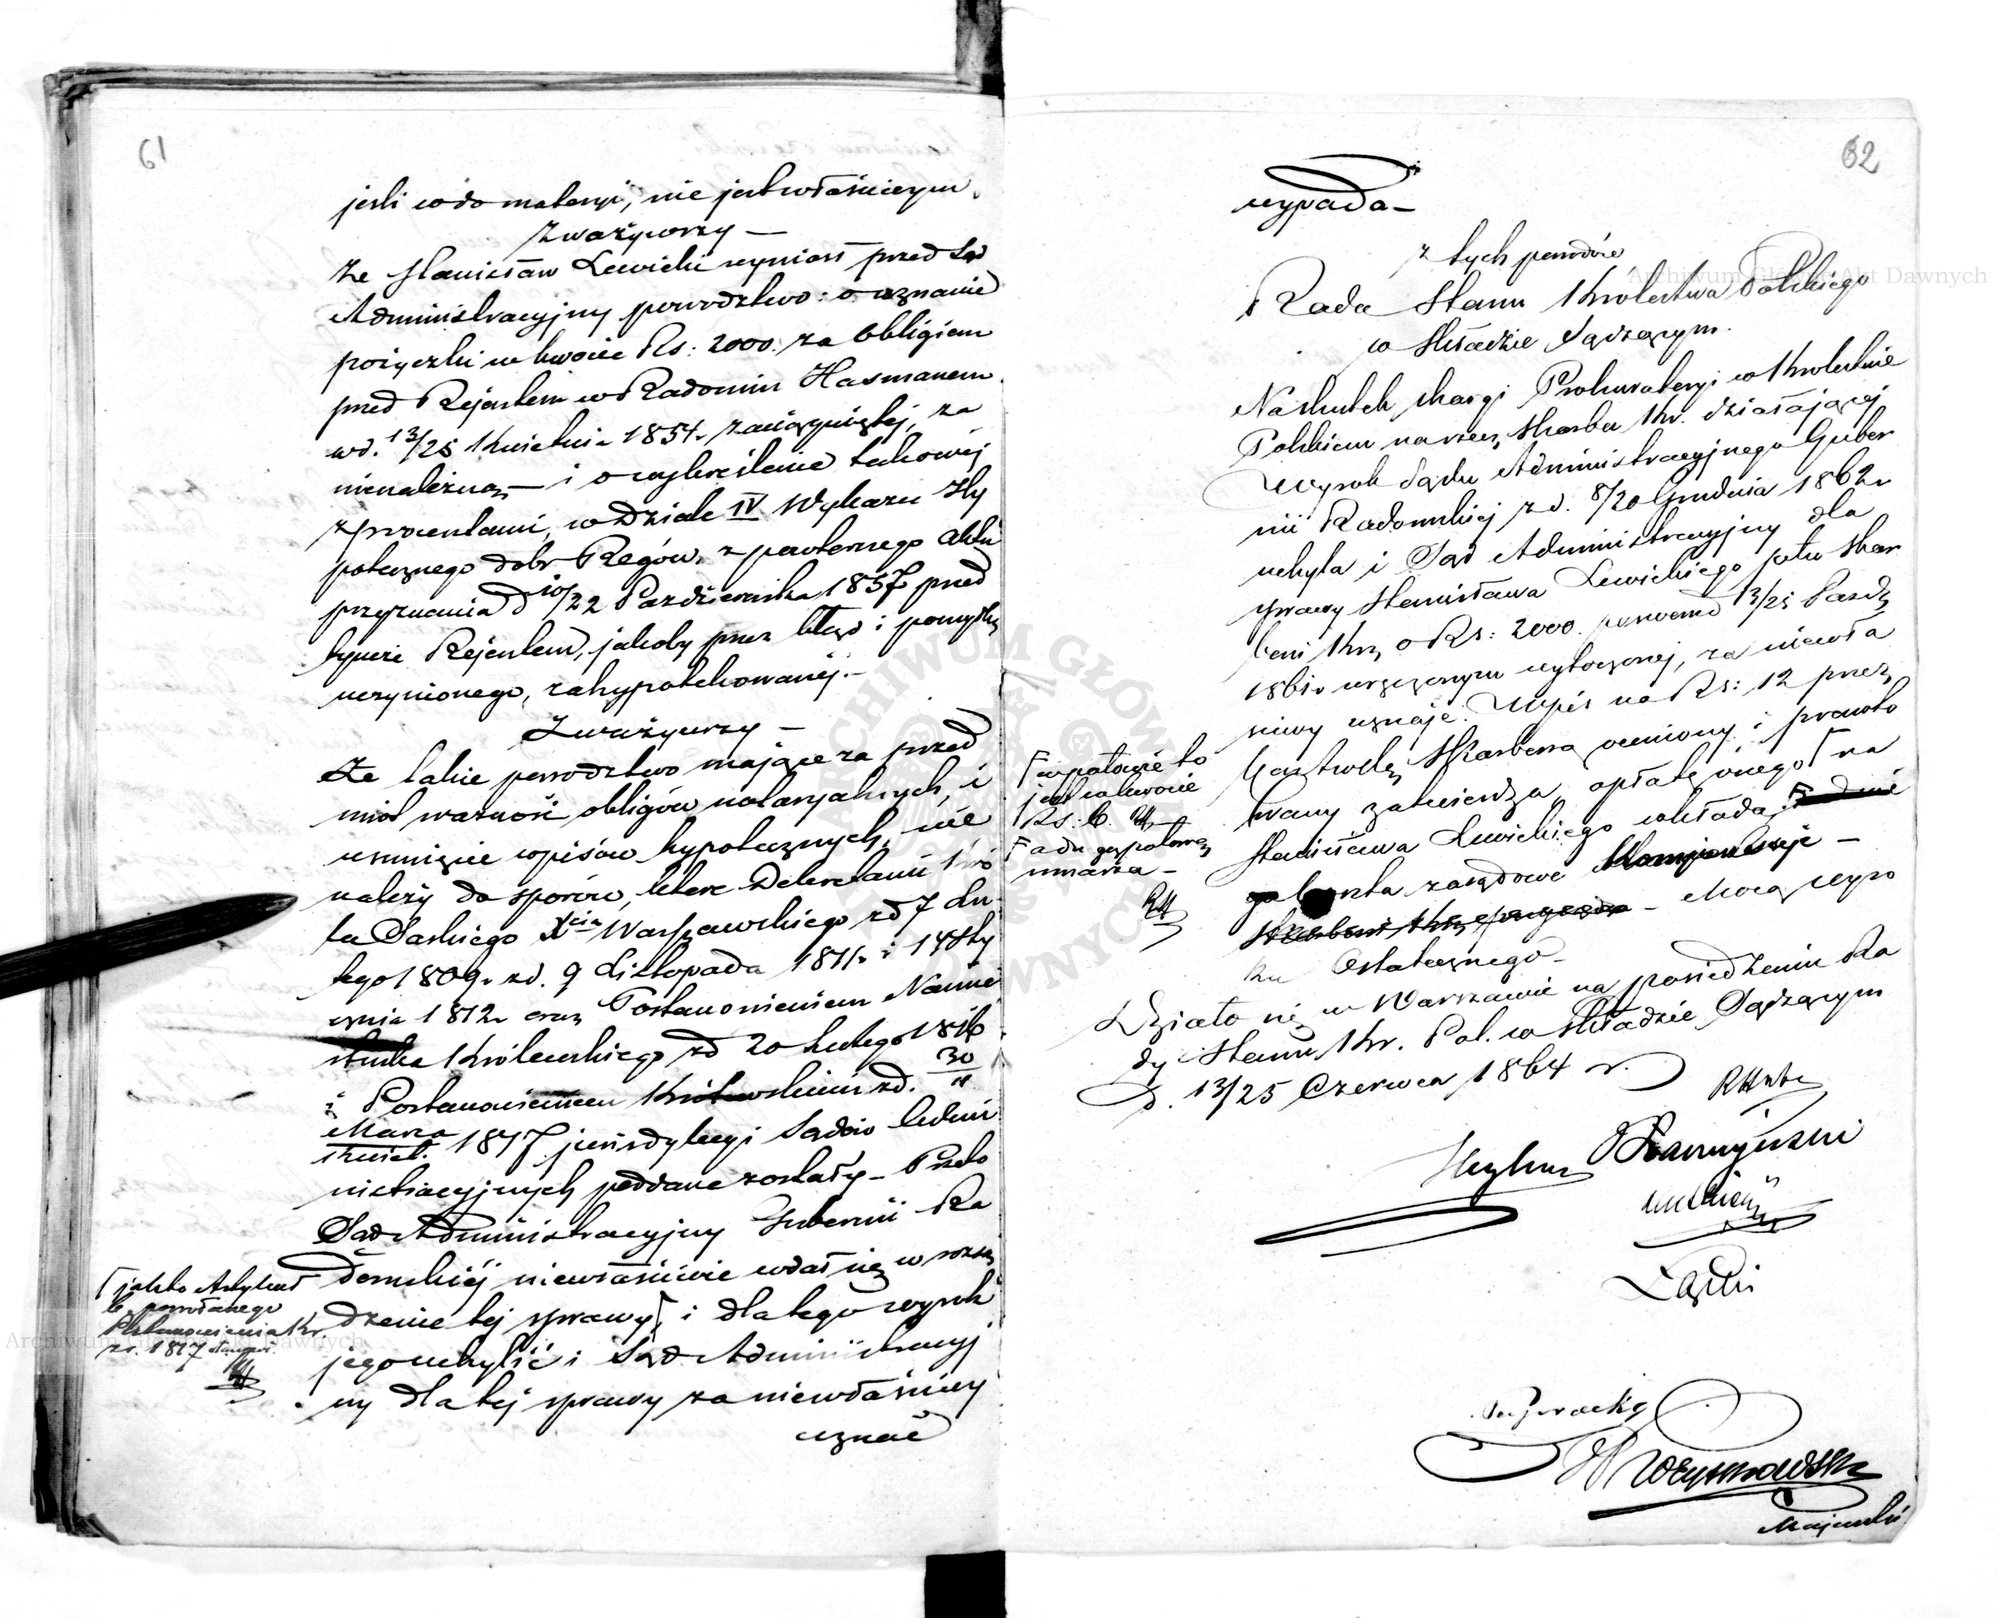 61
jeśli co do materyi, nie jest właściwym.
Zważywszy —
że Stanisław Lewicki wyniósł przed Sąd
Administracyjny powództwo: o uznanie
pożyczki w kwocie Rs: 2000. za Obligiem
przed Rejentem w Radomiu Hasmanem
w d. 13/25 Kwietnia 1854 r. zaciągniętej, za
nienależną — i o wykreślenie takowej
z procentami, w Dziale IV Wykazu Hy
potecznego dóbr Regów, z powtórnego aktu
przyznania d 10/22 Października 1857 przed
tymże Rejentem, jakoby przez błąd i pomyłkę
uczynionego, zahypotekowanej. —
Zważywszy —
Że takie powództwo mające za przed
miot ważność obligów notaryalnych, i
usunięcie wpisów hypotecznych, nie
należy do sporów, które Dekretami Kró
la Saskiego Xcia Warszawskiego z d 7 Lu
tego 1809 r. z d. 9 Listopada 1811 r. i 14 Sty
cznia 1812 r. oraz Postanowieniem Namie
stnika Królewskiego z d 20 Lutego 1816
i Postanowieniem Królewskim z d. 30
Marca
Kwiet. 1817 jurisdykcyi Sądów Admi
nistracyjnych poddane zostały — Przeto
Sąd Administracyjny Gubernii Ra
domskiej niewłaściwie wdał się w rozsą
dzenie tej sprawy, i dla tego wyrok
jego uchylić i Sąd Administracyj
ny dla tej sprawy za niewłaściwy
uznać
jako Artykuł
6. powołanego
Postanowienia Kr.
z r. 1817
62
wypada —
z tych powodów
Rada Stanu Królestwa Polskiego
w Składzie Sądzącym.
Na skutek skargi Prokuratoryi w Królestwie
Polskiem na rzecz Skarbu Kr. działającej
Wyrok Sądu Administracyjnego Guber
nii Radomskiej z d. 8/20 Grudnia 1862 r.
uchyla i Sąd Administracyjny dla
sprawy Stanisława Lewickiego pko Skar
bowi Krz o Rs: 2000. pozwem d 13/25 Paźdz
1861 r. wręczonym wytoczonej, za niewła
ściwy uznaje. Wpis na Rs: 12 przez
Kasztelę Skarbową oceniony i prawto
wany zatwierdza, opłatę onego na
Stanisława Lewickiego wkłada,
koszta zasądowe kompensuje —
— Mocą wyro
ku Ostatecznego —
w połowie to
jest w kwocie
Rs. 6.
a drugą połowę
umarza —
Działo się w Warszawie na posiedzeniu Ra
dy Stanu Kr. Pol. w Składzie Sądzącym
d. 13/25 Czerwca 1864 r.
Łąski
Majewski
Archiwum Główne Akt Dawnych
Archiwum Główne Akt Dawnych
ARCHIWUM GŁÓWNE AKT DAWNYCH